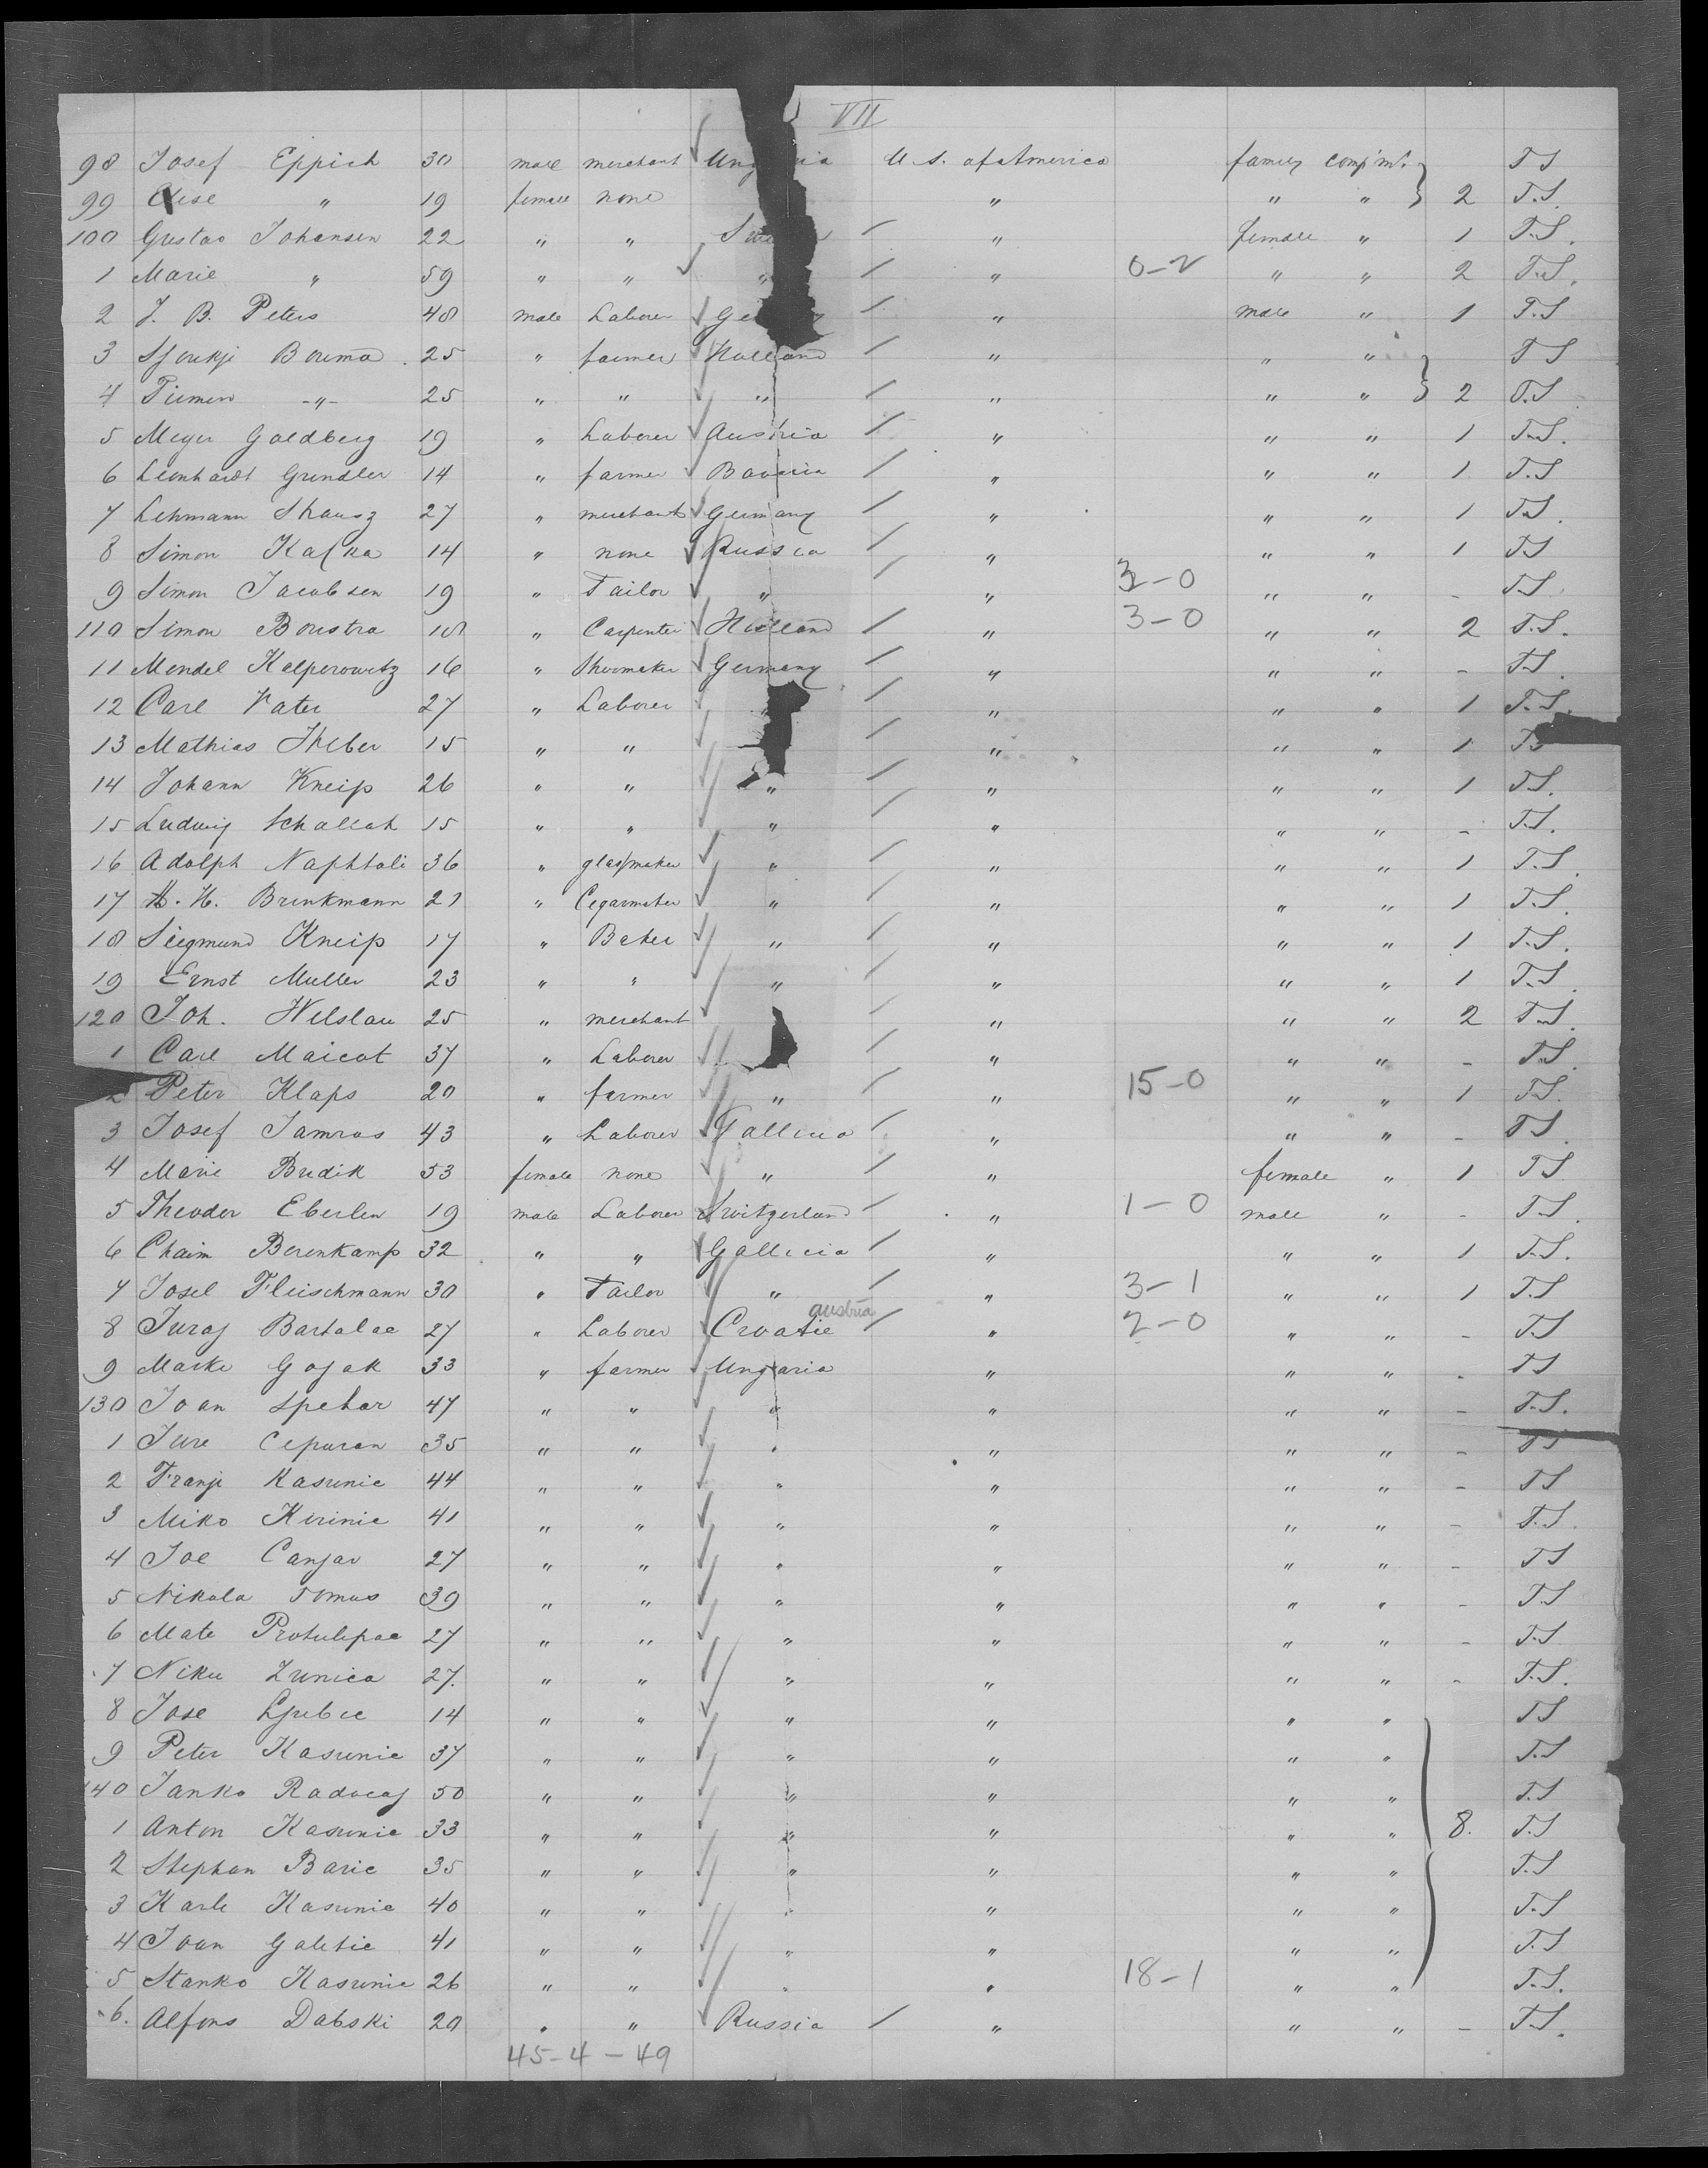 VII
98 Josef Eppich 30 male merchant Ung ria U. S. of America family comp'mt. T S
99 Elise " 19 female none " " " 2 T.S.
100 Gustav Johansen 22 " " Swe " female " 1 T.S.
1 Marie " 59 " " " " 0-2 " " 2 T.S.
2 J. B. Peters 48 male Laborer Ge y " male " 1 T.S
3 Sjoukje Bouma 25 " farmer Holland " " " T S
4 Tiemen -"- 25 " " " " " " 2 T.S
5 Meyer Goldberg 19 " Laborer Austria " " " 1 T.S.
6 Leonhardt Grundler 14 " farmer Bavaria " " " 1 T.S
7 Lehmann 27 " merchant Germany " " " 1 T.S.
8 Simon Kafka 14 " none Russia " " " 1 T.S
9 Simon Jacobsen 19 " Tailor " " 3-0 " " - T.S.
110 Simon Boustra 18 " Carpenter Holland " 3-0 " " 2 T.S.
11 Mendel Kalperowitz 16 " Shoemaker Germany " " " - T.S.
12 Carl Vater 27 " Laborer " " " " 1 T.S.
13 Mathias Theber 15 " " " " " 1 T.S
14 Johann Kneip 26 " " " " " " 1 T.S.
15 Ludwig Schallah 15 " " " " " " - T.S.
16 Adolph Naphtali 36 " glassmaker " " " " 1 T.S.
17 H. Brinkmann 21 " Cegarmaker " " " " 1 T.S.
18 Siegmund Kneip 17 " Baker " " " " 1 T.S.
19 Ernst Muller 23 " " " " " " 1 T.S.
120 Joh. Welslau 25 " merchant " " " 2 T.S.
1 Carl Maicot 37 " Laborer " " " - T.S.
2 Peter Klaps 20 " farmer " " 15-0 " " 1 T.S.
3 Josef Jamros 43 " Laborer Gallicia " " " - T S.
4 Marie Budik 53 female none " " female " 1 T S
5 Theodor Eberlen 19 male Laborer Switzerland " 1-0 male " - T.S.
6 Chaim Berenkamp 32 " " Gallicia " " " 1 T.S.
7 Josel Fleischmann 30 " Tailor " " 3-1 " " 1 T.S
8 Juraj Bartolac 27 " Laborer Croatie austria " 2-0 " " - T.S
9 Marko Gojak 33 " farmer Ungaria " " " - T S
130 Ivan Spehar 47 " " " " " " - T.S.
1 Jure Cepuran 35 " " " " " " - T S
2 Franje Kasunic 44 " " " " " " - T S
3 Miko Kirinic 41 " " " " " " - T.S.
4 Joe Canjar 27 " " " " " " - T S
5 Nikola Tomas 39 " " " " " " - T.S
6 Mate Protulipac 27 " " " " " " - T.S
7 Niku Zunica 27. " " " " " " - T.S.
8 Jose Ljubic 14 " " " " " " T S
9 Peter Kasunic 37 " " " " " " T.S
140 Janko Radocaj 50 " " " " " " T.S
1 Anton Kasunic 33 " " " " " " 8. T.S
2 Stephan Baric 35 " " " " " " T.S
3 Karlo Kasunic 40 " " " " " " T.S
4 Ivan Galetic 41 " " " " " " T.S
5 Stanko Kasunic 26 " " " " 18-1 " " T.S.
6. Alfons Dabski 20 " " Russia " " " - T.S.
45-4-49